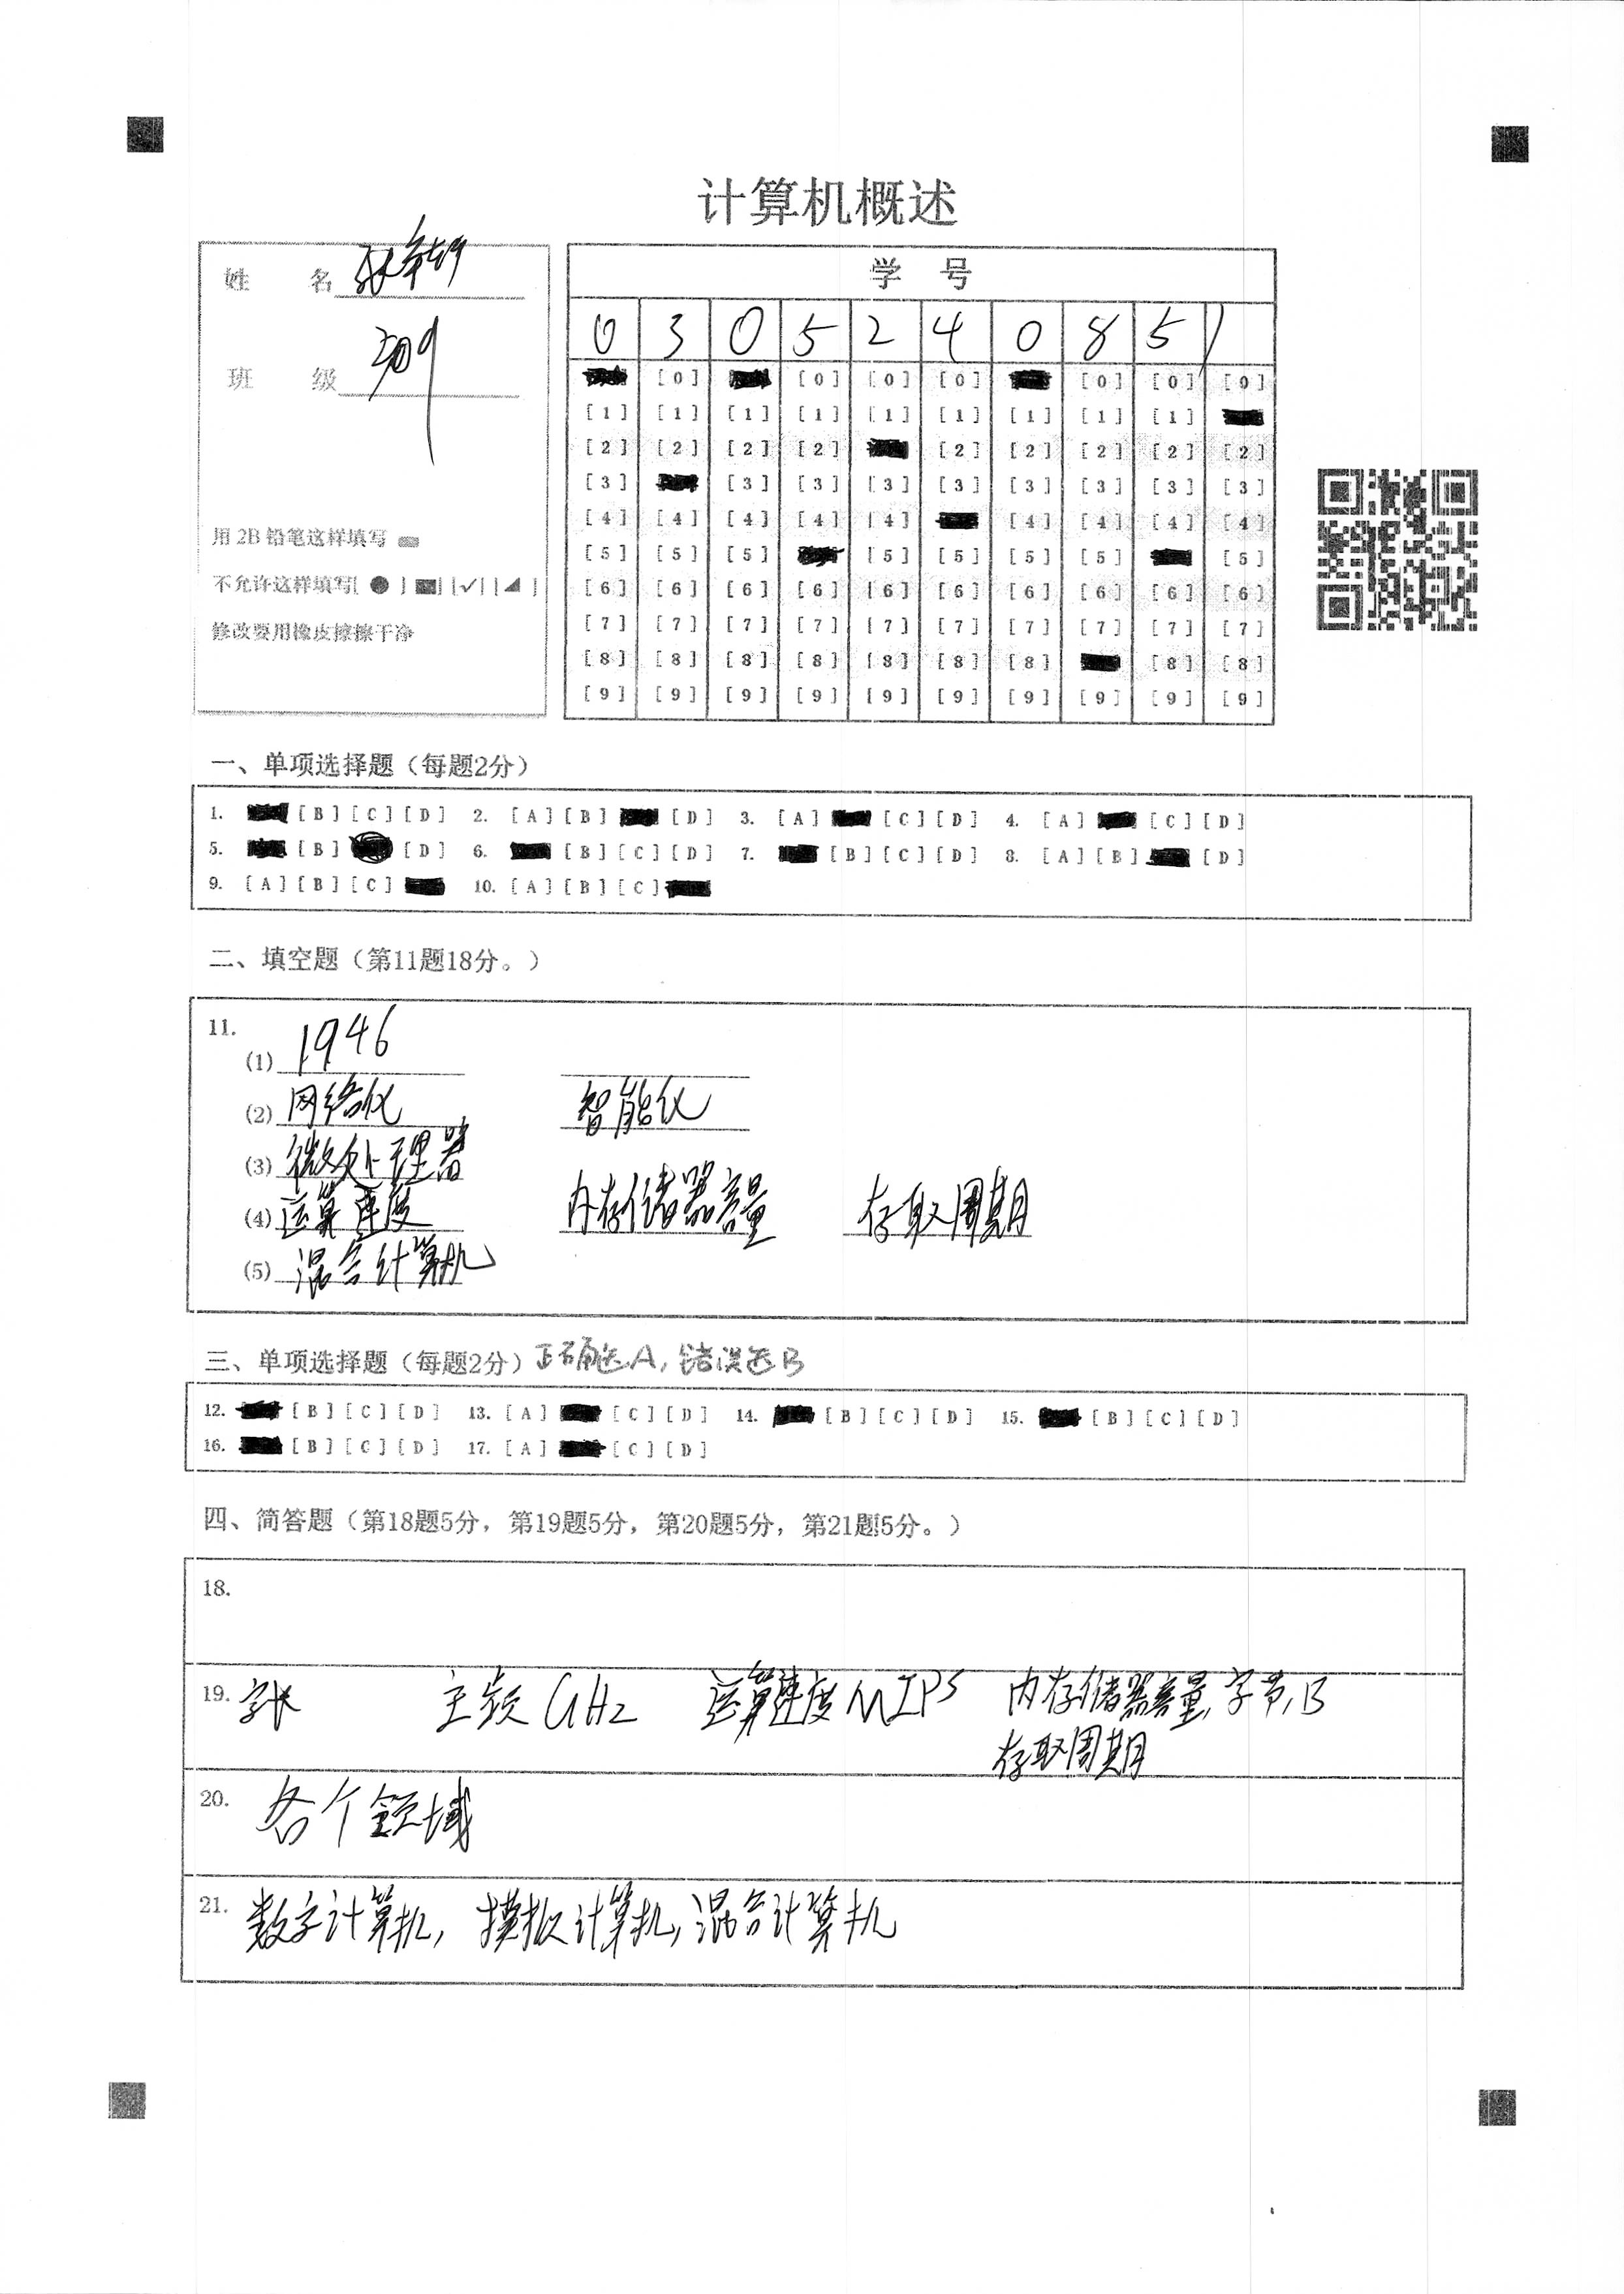 计算机概述
姓 名
班 级 309
用 2B 铅笔这样填写
不允许这样填写[ ● ] [ ] [✓] [◢ ]
修改要用橡皮擦擦干净
学 号
0 3 0 5 2 4 0 8 5 1
[0] [0] [0] [0] [0] [0] [0]
[1] [1] [1] [1] [1] [1] [1] [1] [1]
[2] [2] [2] [2] [2] [2] [2] [2] [2]
[3] [3] [3] [3] [3] [3] [3] [3] [3]
[4] [4] [4] [4] [4] [4] [4] [4] [4]
[5] [5] [5] [5] [5] [5] [5] [5]
[6] [6] [6] [6] [6] [6] [6] [6] [6] [6]
[7] [7] [7] [7] [7] [7] [7] [7] [7] [7]
[8] [8] [8] [8] [8] [8] [8] [8] [8]
[9] [9] [9] [9] [9] [9] [9] [9] [9] [9]
一、单项选择题（每题2分）
1. [B] [C] [D] 2. [A] [B] [D] 3. [A] [C] [D] 4. [A] [C] [D]
5. [B] [D] 6. [B] [C] [D] 7. [B] [C] [D] 8. [A] [B] [D]
9. [A] [B] [C] 10. [A] [B] [C]
二、填空题（第11题18分。）
11.
(1) 1946
(2) 网络化 智能化
(3) 微处理器
(4) 运算速度 内存储器容量 存取周期
(5) 混合计算机
三、单项选择题（每题2分）正确选A，错误选B
12. [B] [C] [D] 13. [A] [C] [D] 14. [B] [C] [D] 15. [B] [C] [D]
16. [B] [C] [D] 17. [A] [C] [D]
四、简答题（第18题5分，第19题5分，第20题5分，第21题5分。）
18.
19. 字长 主频 GHz 运算速度 MIPS 内存储器容量，字节，B
存取周期
20. 各个领域
21. 数字计算机，模拟计算机，混合计算机